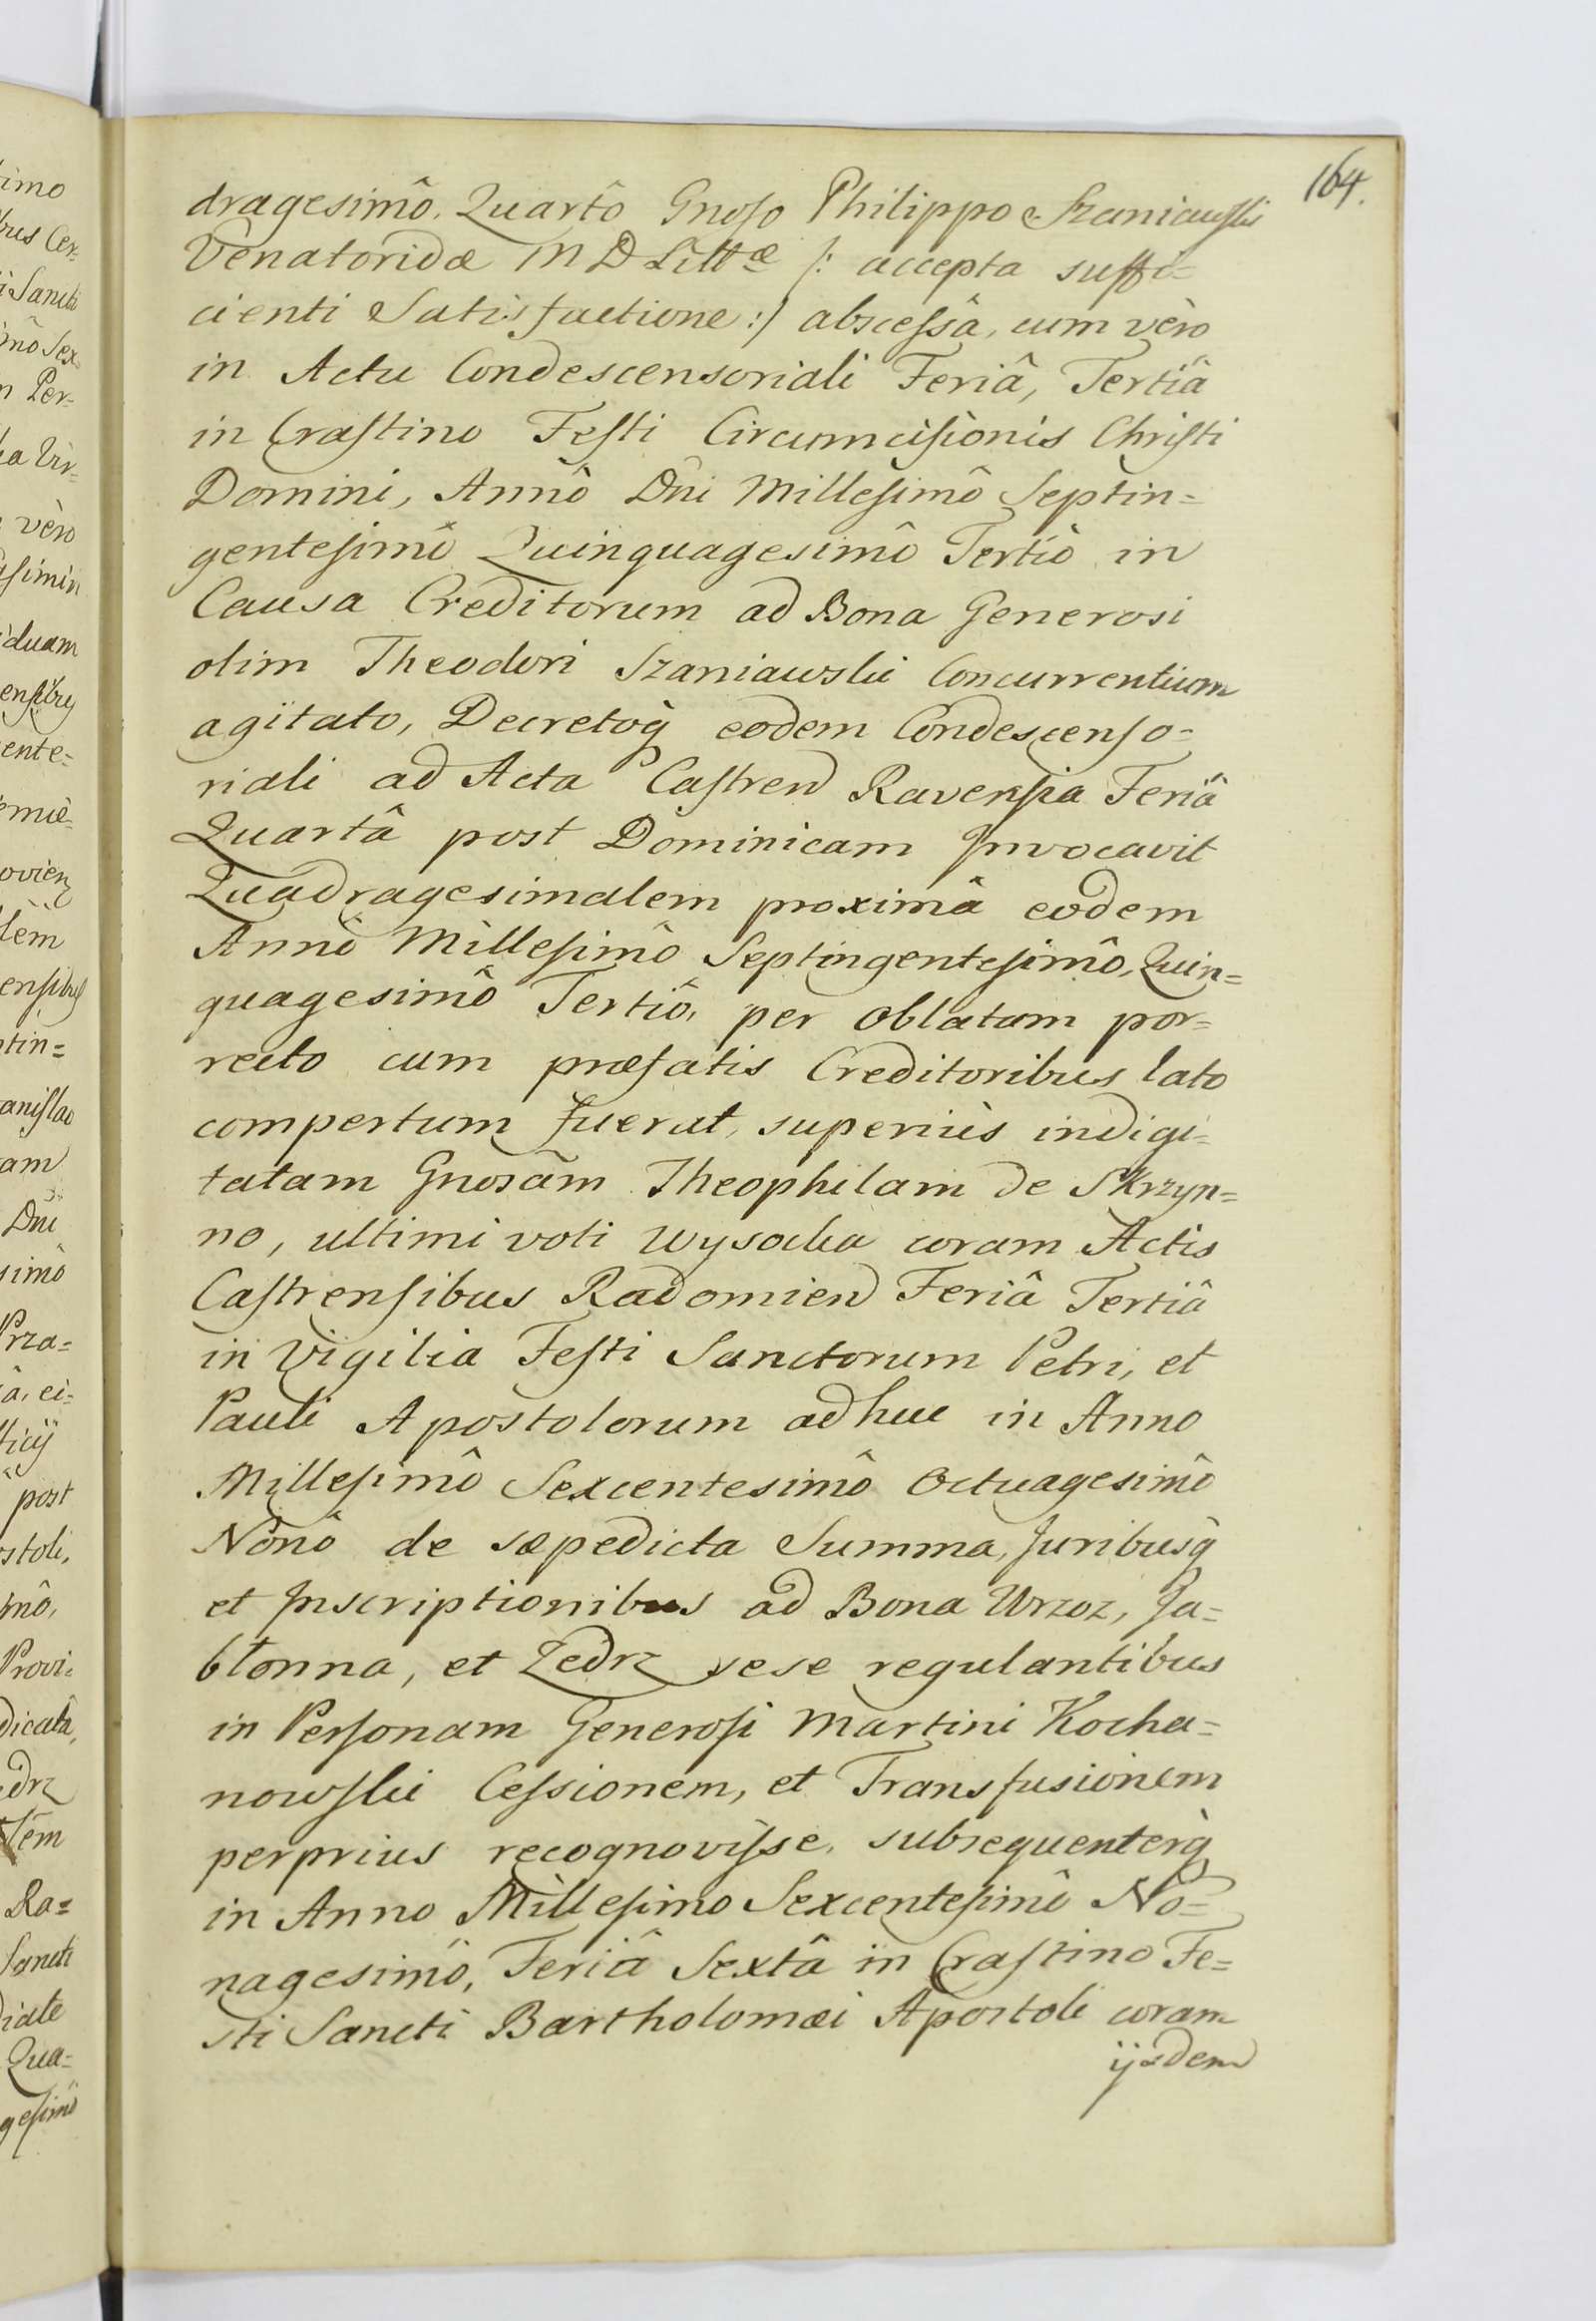 164.
dragesimô. Quartô Gnoso Philippo Szaniawski
Venatoridæ M D Littæ /: accepta suffi=
cienti Satisfactione :/ abscessâ, cum vèro
in Actu Condescensoriali Feriâ, Tertiâ
in Crastino Festi Circumcisionis Christi
Domini, Annô Dni Millesimô Septin=
gentesimô Quinquagesimô Tertiô in
Causa Creditorum ad Bona Generosi
olim Theodori Szaniawski Concurrentium
agitato, Decretoq̀ eodem Condescenso=
riali ad Acta Castren Ravensia Feriâ
Quartâ post Dominicam Invocavit
Quadragesimalem proximâ eodem
Annô Millesimô Septingentesimô, Quin=
quagesimô Tertiô, per Oblatam por=
recto cum præfatis Creditoribus lato
compertum fuerat, superiùs indigi=
tatam Gnosãm Theophilam de Skrzyn=
no, ultimi voti Wysocka coram Actis
Castrensibus Radomien Feriâ Tertiâ
in Vigilia Festi Sanctorum Petri, et
Pauli Apostolorum adhuc in Anno
Millesimô Sexcentesimô Octuagesimô
Nonô de sæpedicta Summa, Juribusq̀
et Inscriptionibus ad Bona Wrzoz, Ja=
błonna, et Zedrz sese regulantibus
in Personam Generosi Martini Kocha=
nowski Cessionem, et Transfusionem
perprius recognovisse, subsequenterq̀
in Anno Millesimo Sexcentesimô No=
nagesimô, Feriâ Sextâ in Crastino Fe=
sti Sancti Bartholomæi Apostoli coram
ijsdem
imo
Cer=
Sancti
Sex
Per=
Vir=
vèro
duam
ente=
lèm
tin=
anislao
am
Dni
simô
Prza=
â, ei=
post
stoli,
mô,
Provi=
dicatâ,
edrz
Ra=
Sancti
diate
Qua=
gesimô